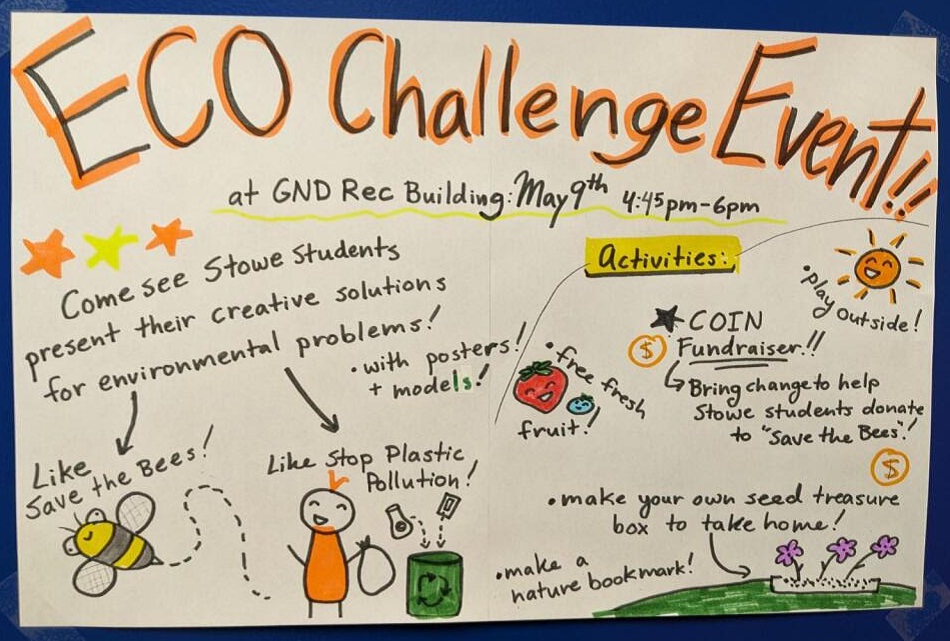 ECO Challenge Event!!
at GND Rec Building: May 9th 4:45pm-6pm
Come see Stowe Students
present their creative solutions
for environmental problems!
• with posters!
+ models!
Like
Save the Bees!
Like Stop Plastic
Pollution!
Activities:
• play outside!
★ COIN
$ Fundraiser!!
Bring change to help
Stowe students donate
to "Save the Bees"!
$
• free fresh
fruit!
• make your own seed treasure
box to take home!
• make a
nature bookmark!